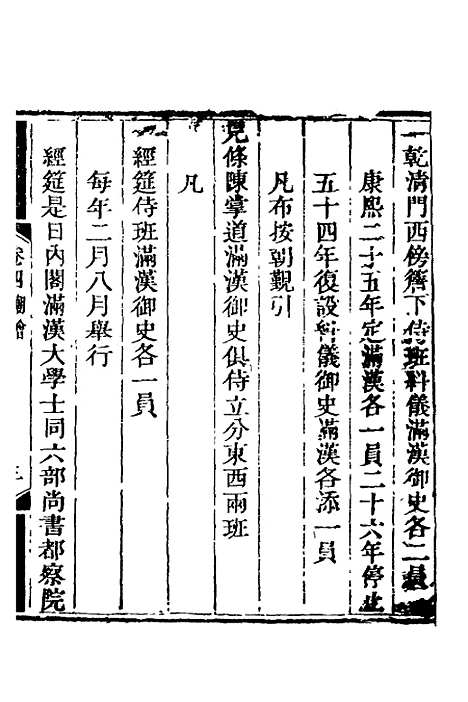 一乾清門西傍簷下侍班科儀滿漢御史各二員
康熙二十五年定滿漢各一員二十六年停止
五十四年復設科儀御史滿漢各添一員
凡布按朝覲引
見條陳掌道滿漢御史俱侍立分東西兩班
凡
經筵侍班滿漢御史各一員
每年二月八月舉行
經筵是日內閣滿漢大學士同六部尚書都察院
卷四 朝會
三